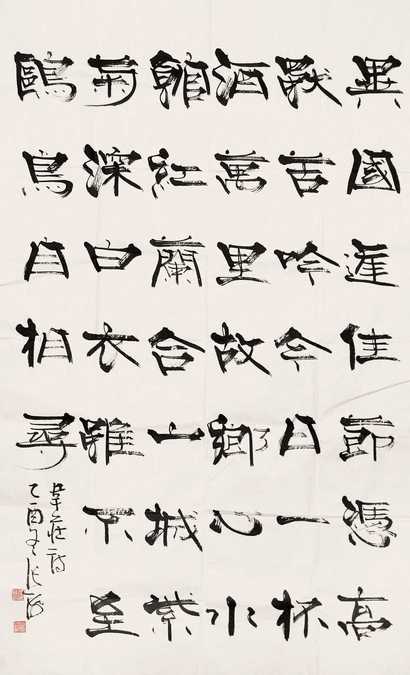 異國逢佳節憑高
苦吟今日一杯
酒萬里故鄉心水
館紅蘭合山城紫
菊深白衣雖不至
鷗鳥自相尋
韋莊詩
乙酉冬張海